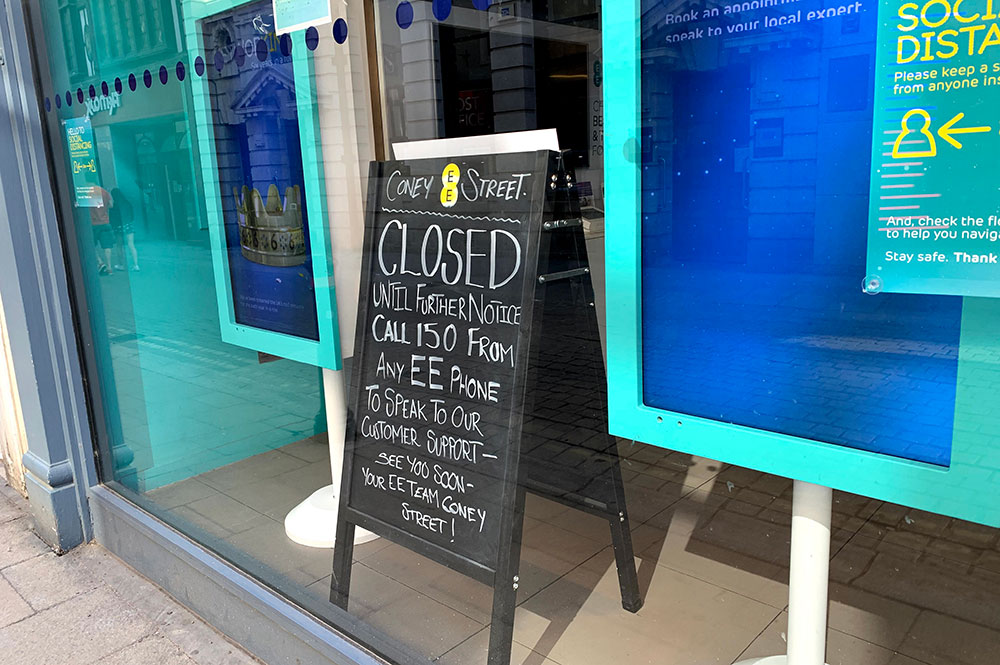 Book an appointment
speak to your local expert.
SOCIAL
DISTA
Please keep a s
from anyone ins
And, check the flo
to help you naviga
Stay safe. Thank
HELLO TO
SOCIAL
DISTANCING
CONEY EE STREET.
CLOSED
UNTIL FURTHER NOTICE
CALL 150 FROM
ANY EE PHONE
TO SPEAK TO OUR
CUSTOMER SUPPORT—
SEE YOU SOON-
YOUR EE TEAM CONEY
STREET!